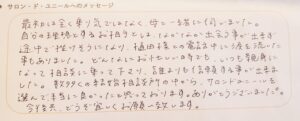 サロン・ド・ユニールへのメッセージ
最初は全く乗り気ではなく 母と一緒に伺いました。
自分の理想とするお相手とは、なかなか出会う事が出来ず
途中で挫けそうになり、植田様との電話中に涙を流した
事もありました。どんなにお忙しい時でも、いつも親身に
なって相談に乗って下さり、誰よりも信頼する事が出来ま
した。数多くの結婚相談所の中から、サロンドユニールを
選んで本当に良かったと思っております。ありがとうございました。
今後共、どうぞ宜しくお願い致します。